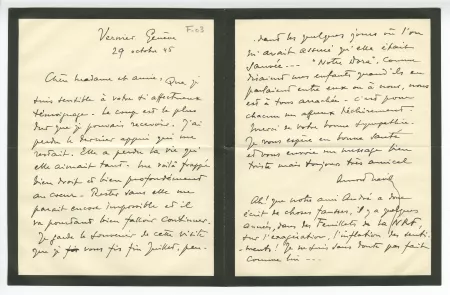 F. 03
Vernier Genève
29 octobre 45
Chère madame et amie, Que je
suis sensible à votre si affectueux
témoignage. Le coup est le plus
dur que je pouvais recevoir. J'ai
perdu le dernier appui qui me
restait. Elle a perdu la vie qu'
elle aimait tant. Me voilà frappé
bien droit et bien profondément
au cœur. Rester sans elle me
parait encore impossible et il
va pourtant bien falloir continuer.
Je garde le souvenir de cette visite
que je vous fis fin Juillet, pen-
dant les quelques jours où l'on
m'avait assuré qu'elle était
sauvée... "Notre Doré", comme
disaient mes enfants quand ils en
parlaient entre eux ou à nous, nous
est à tous arrachée. C'est pour
chacun un affreux déchirement.
Merci de votre bonne sympathie.
Je vous espère en bonne santé
et vous envoie un message bien
triste mais toujours très amical
Ah! que notre ami André a donc
écrit de choses fausses, il y a quelques
années, dans des Feuillets de la NRF,
sur l'exagération, l'inflation des senti-
ments! Je ne suis sans doute pas fait
comme lui —